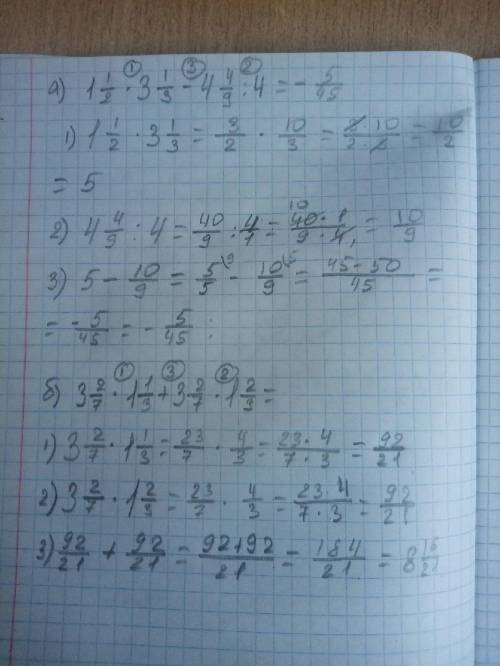 а) 1 1/2 · 3 1/3 - 4 4/9 : 4 = - 5/45
① ③ ②
1) 1 1/2 · 3 1/3 = 3/2 · 10/3 = 3·10/2·3 = 10/2
= 5
2) 4 4/9 : 4 = 40/9 : 4/1 = 40·1/9·4 = 10/9
3) 5 - 10/9 = 5/5 - 10/9 = 45-50/45 =
= -5/45 = - 5/45 ;
б) 3 2/7 · 1 1/3 + 3 2/7 · 1 2/3 =
① ③ ②
1) 3 2/7 · 1 1/3 = 23/7 · 4/3 = 23·4/7·3 = 92/21
2) 3 2/7 · 1 2/3 = 23/7 · 4/3 = 23·4/7·3 = 92/21
3) 92/21 + 92/21 = 92+92/21 = 184/21 = 8 16/21